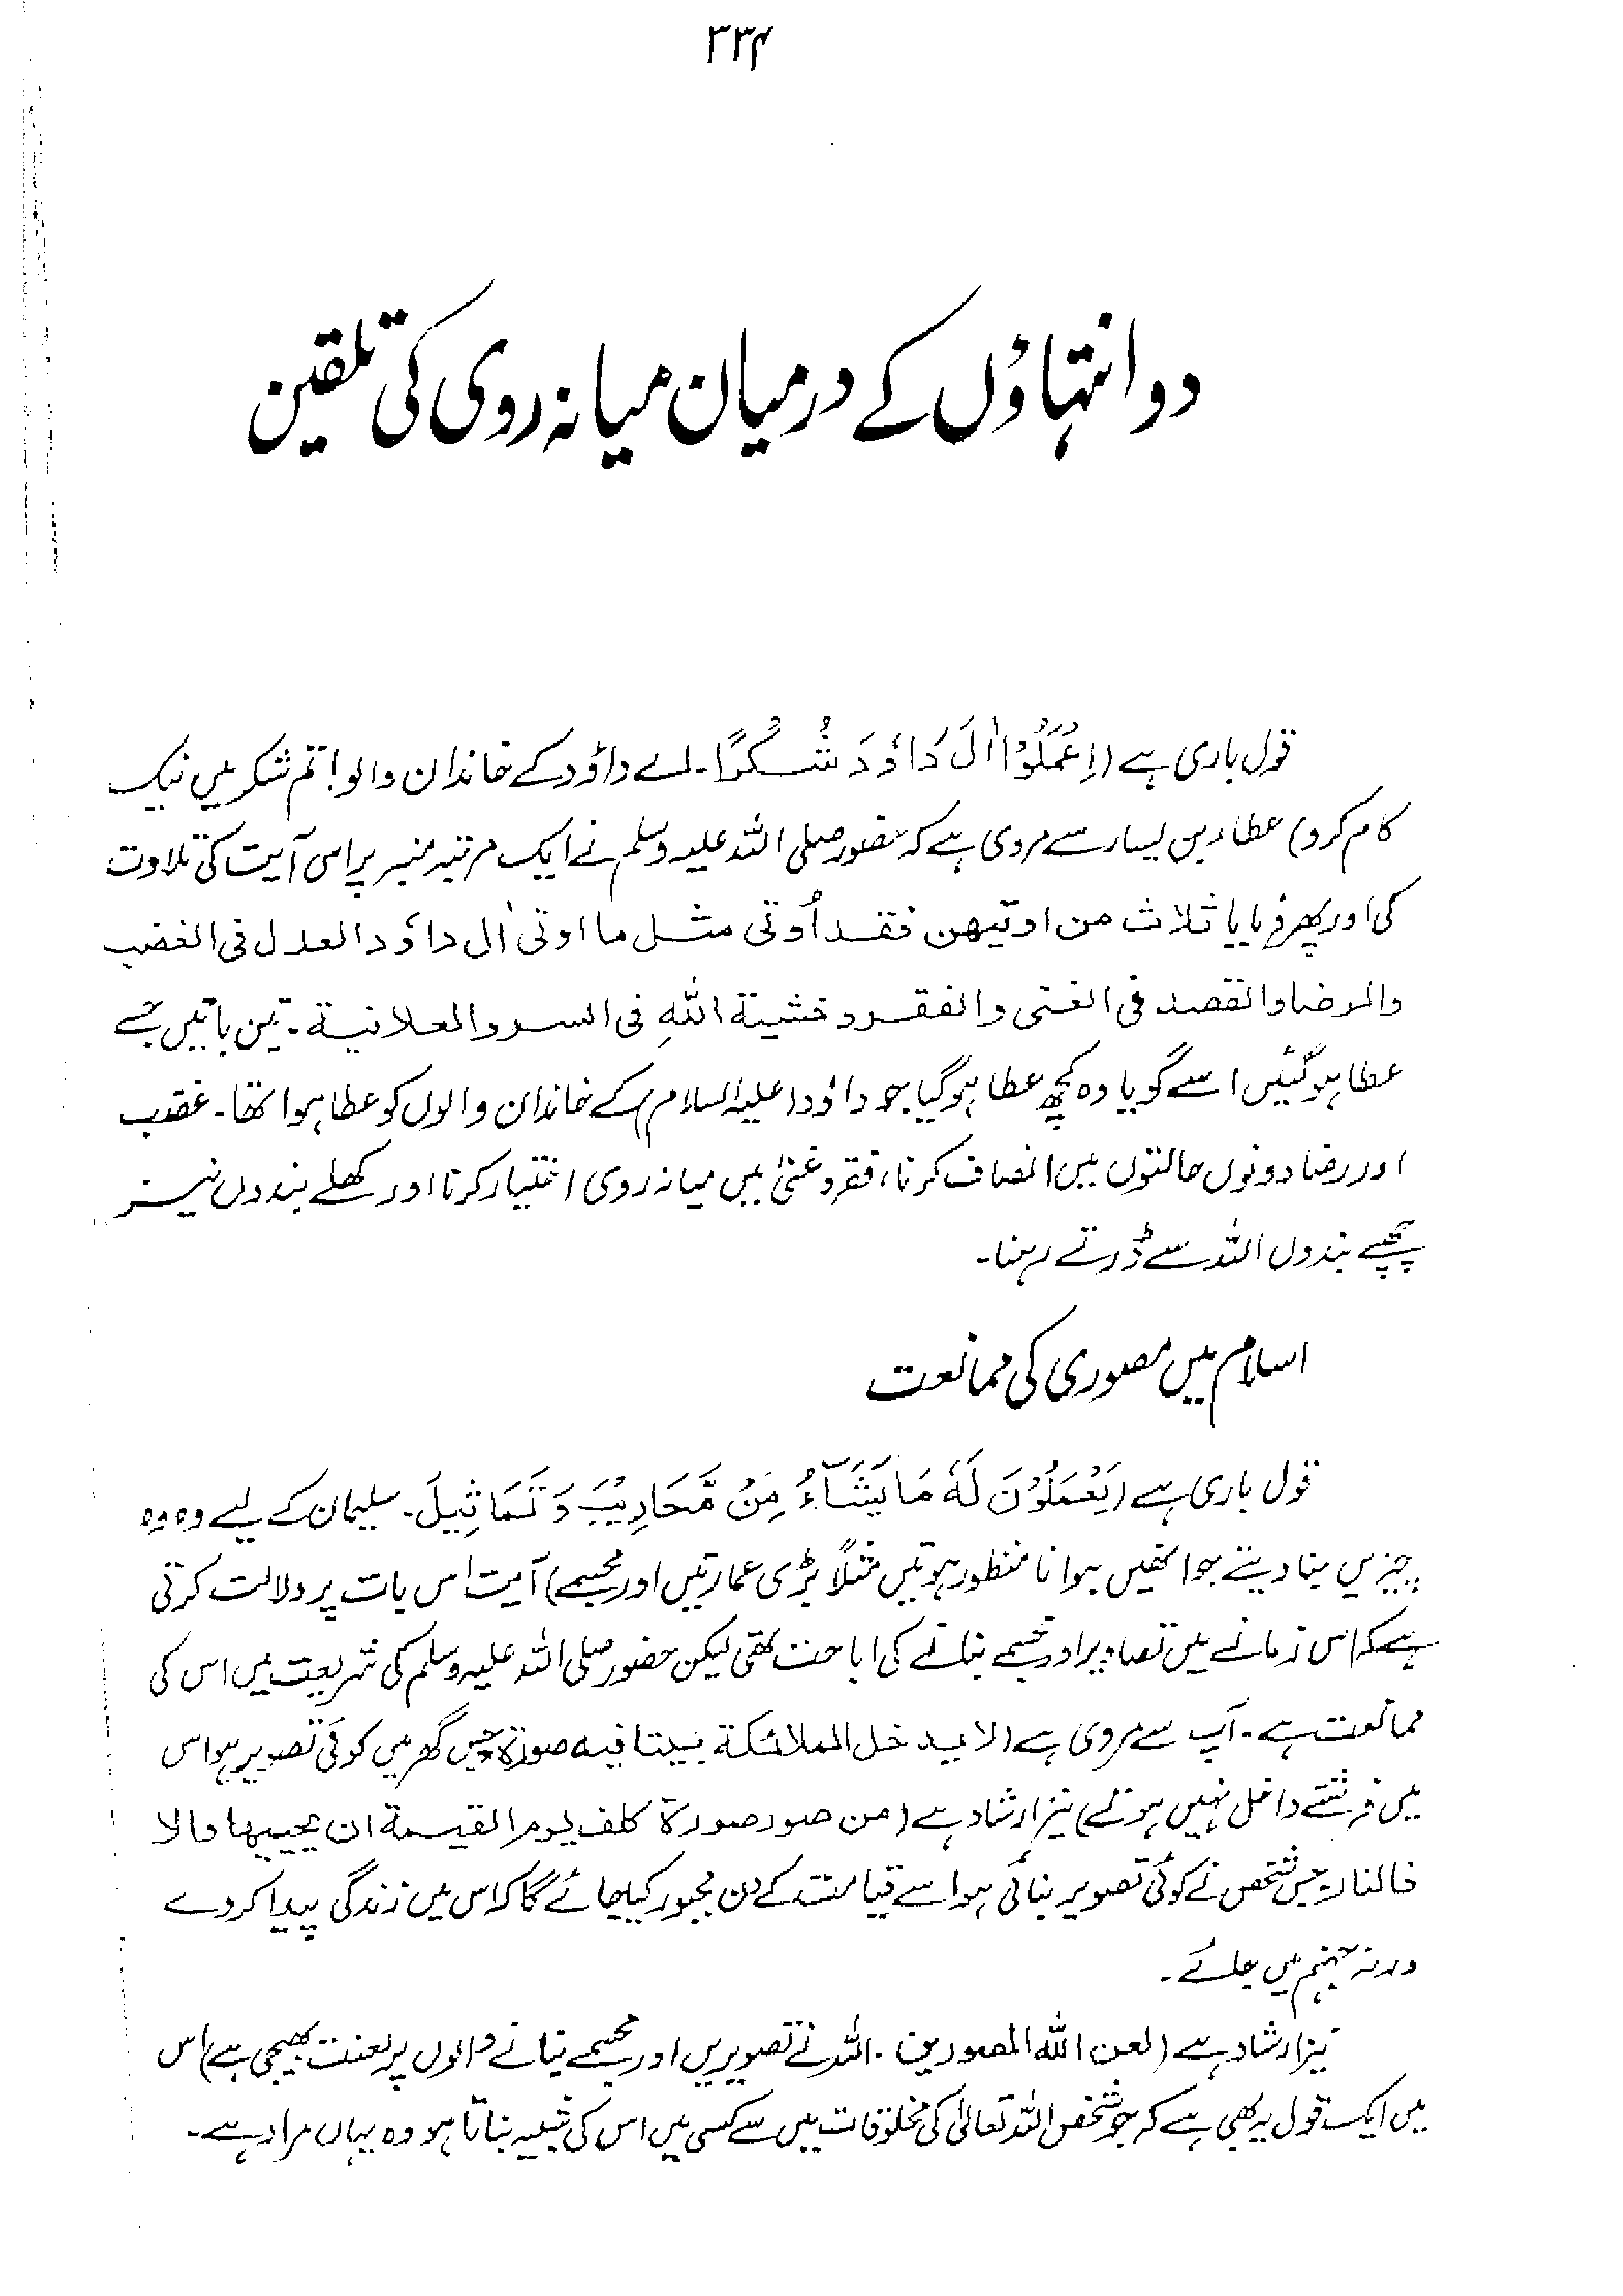 ۳۳۴
دو انتہاؤں کے درمیان میانہ روی کی تلقین
قول باری ہے (اِعْمَلُوْا اٰلَ دَاوٗدَ شُكْرًا۔ اے داؤد کے خاندان والو! تم شکر میں نیک
کام کرو) عطاء بن یسار سے مروی ہے کہ حضور صلی اللہ علیہ وسلم نے ایک مرتبہ منبر پر اس آیت کی تلاوت
کی اور پھر فرمایا ثلاث من اوتیھن فقد اُوتی مثل ما اوتی اٰل داؤد العدل فی الغضب
والرضا والقصد فی الغنی والفقر و خشیة اللهِ فی السر والعلانیة۔ تین باتیں جسے
عطا ہوگئیں اسے گویا وہ کچھ عطا ہوگیا جو داؤد (علیہ السلام) کے خاندان والوں کو عطا ہوا تھا۔ غضب
اور رضا دونوں حالتوں میں انصاف کرنا، فقر و غنیٰ میں میانہ روی اختیار کرنا اور کھلے بندوں نیز
چھپے بندوں اللہ سے ڈرتے رہنا۔
اسلام میں مصوری کی ممانعت
قول باری ہے (یَعْمَلُوْنَ لَهٗ مَا یَشَآءُ مِنْ مَّحَارِیْبَ وَ تَمَاثِیْلَ۔ سلیمان کے لیے وہ وہ
چیزیں بنا دیتے جو انھیں بنوانا منظور ہوتیں مثلاً بڑی عمارتیں اور مجسمے) آیت اس بات پر دلالت کرتی
ہے کہ اس زمانے میں تصاویر اور مجسمے بنانے کی اباحت تھی لیکن حضور صلی اللہ علیہ وسلم کی شریعت میں اس کی
ممانعت ہے۔ آپ سے مروی ہے (لا یدخل الملائکة بیتا فیه صورة جس گھر میں کوئی تصویر ہو اس
میں فرشتے داخل نہیں ہوتے) نیز ارشاد ہے (من صور صورة کلف یوم القیمة ان یحییھا والا
فالنار جس شخص نے کوئی تصویر بنائی ہو اسے قیامت کے دن مجبور کیا جائے گا کہ اس میں زندگی پیدا کر دے
ورنہ جہنم میں جائے۔
نیز ارشاد ہے (لعن الله المصورین۔ اللہ نے تصویریں اور مجسمے بنانے والوں پر لعنت بھیجی ہے) اس
میں ایک قول یہ بھی ہے کہ جو شخص اللہ تعالیٰ کی مخلوقات میں سے کسی میں اس کی شبیہ بناتا ہو وہ یہاں مراد ہے۔